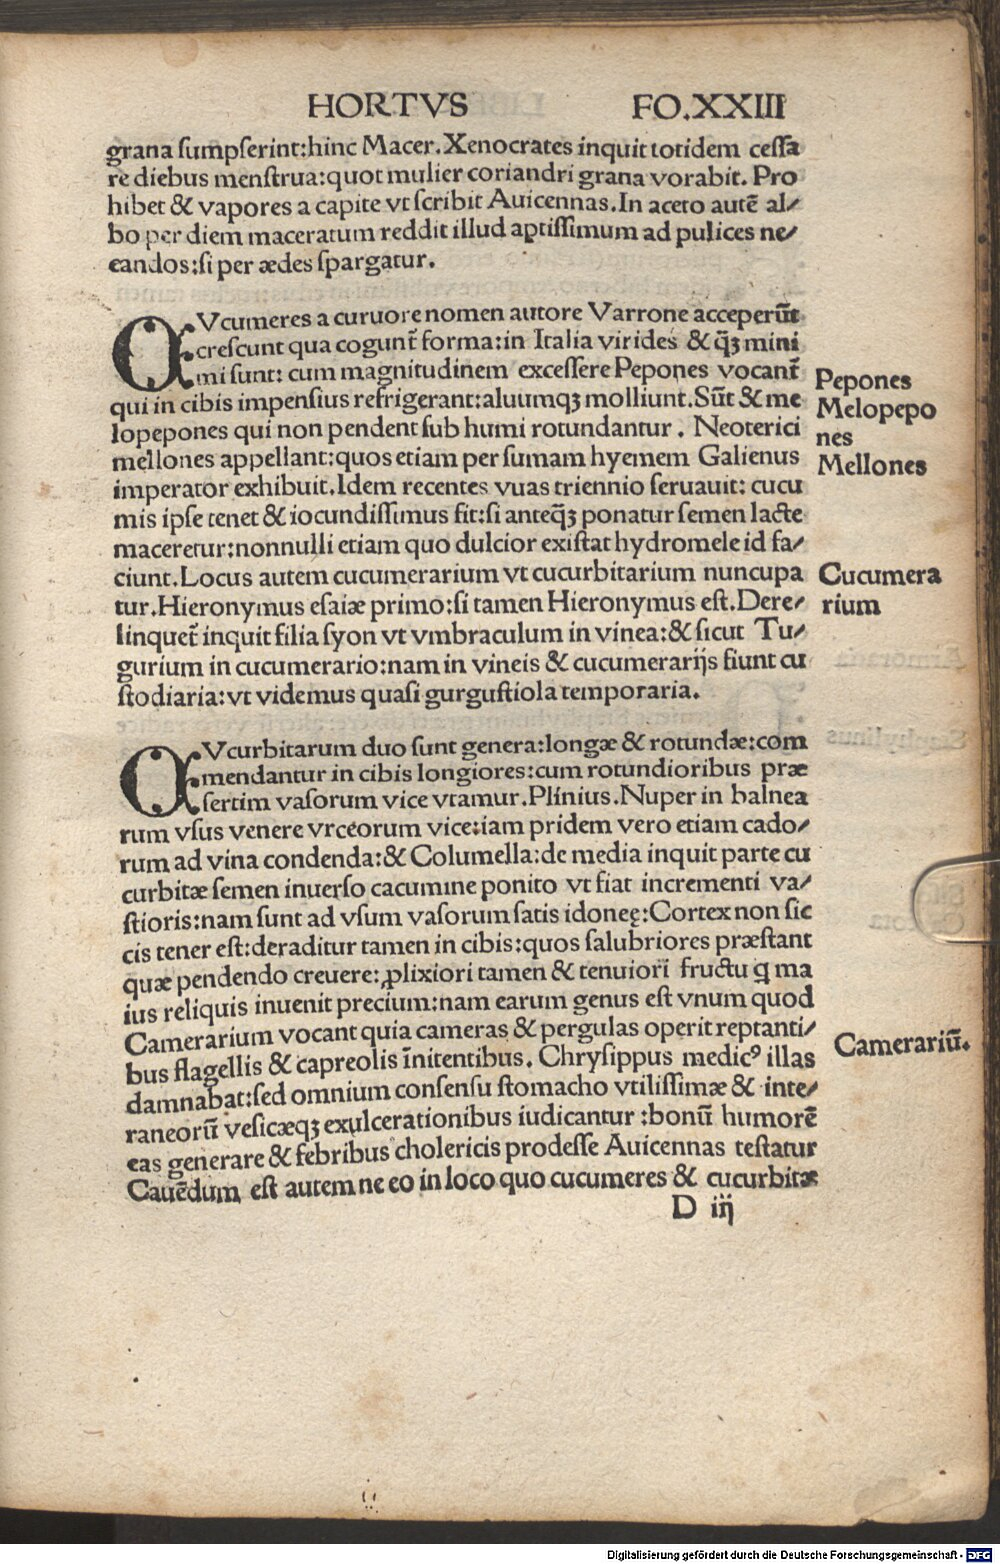 HORTVS FO.XXIII
grana sumpserint:hinc Macer.Xenocrates inquit totidem cessa
re diebus menstrua:quot mulier coriandri grana vorabit. Pro
hibet & vapores a capite vt scribit Auicennas.In aceto autē al/
bo per diem maceratum reddit illud aptissimum ad pulices ne/
candos:si per ædes spargatur.
CVcumeres a curuore nomen autore Varrone acceperūt
crescunt qua cogunt̄ forma:in Italia virides & q̄ꝫ mini
mi sunt: cum magnitudinem excessere Pepones vocant̄
Pepones
qui in cibis impensius refrigerant:aluumqꝫ molliunt.Sūt & me
Melopepo
lopepones qui non pendent sub humi rotundantur . Neoterici
nes
mellones appellant:quos etiam per sumam hyemem Galienus
Mellones
imperator exhibuit.Idem recentes vuas triennio seruauit: cucu
mis ipse tenet & iocundissimus fit:si anteq̄ꝫ ponatur semen lacte
maceretur:nonnulli etiam quo dulcior existat hydromele id fa/
ciunt.Locus autem cucumerarium vt cucurbitarium nuncupa
Cucumera
tur.Hieronymus esaiæ primo:si tamen Hieronymus est.Dere/
rium
linquet̄ inquit filia syon vt vmbraculum in vinea:& sicut Tu/
gurium in cucumerario:nam in vineis & cucumerarijs fiunt cu
stodiaria:vt videmus quasi gurgustiola temporaria.
CVcurbitarum duo sunt genera:longæ & rotundæ:com
mendantur in cibis longiores:cum rotundioribus præ
sertim vasorum vice vtamur.Plinius.Nuper in balnea
rum vsus venere vrceorum vice:iam pridem vero etiam cado/
rum ad vina condenda:& Columella:de media inquit parte cu
curbitæ semen inuerso cacumine ponito vt fiat incrementi va/
stioris:nam sunt ad vsum vasorum satis idoneę:Cortex non sic
cis tener est:deraditur tamen in cibis:quos salubriores præstant
quæ pendendo creuere:ꝓlixiori tamen & tenuiori fructu q̣ ma
ius reliquis inuenit precium:nam earum genus est vnum quod
Camerarium vocant quia cameras & pergulas operit reptanti/
Camerariū.
bus flagellis & capreolis īnitentibus. Chrysippus medicꝰ illas
damnabat:sed omnium consensu stomacho vtilissimæ & inte/
raneorū vesicæqꝫ exulcerationibus iudicantur :bonū humorē
eas generare & febribus cholericis prodesse Auicennas testatur
Cauēdum est autem ne eo in loco quo cucumeres & cucurbitæ
D iij
Digitalisierung gefördert durch die Deutsche Forschungsgemeinschaft - DFG